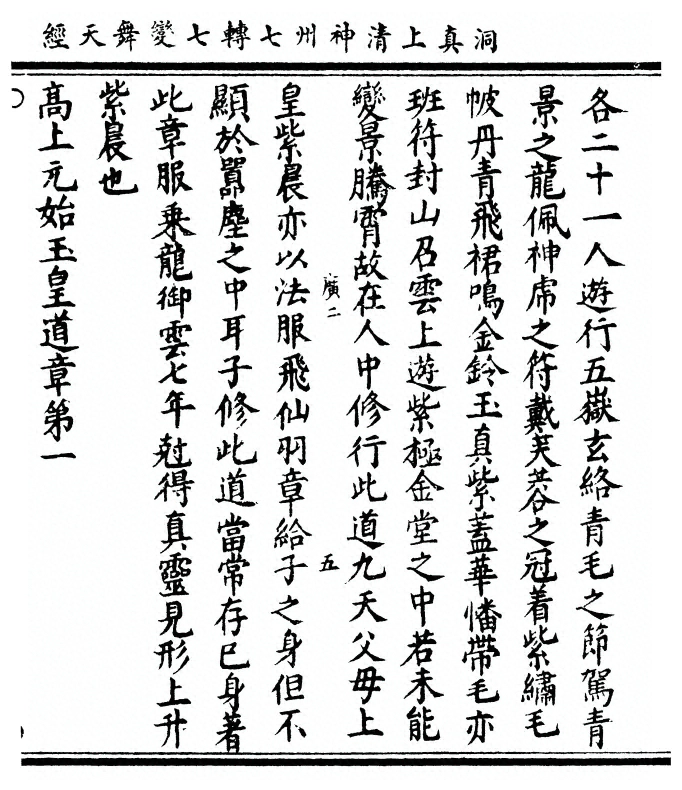 洞真上清神州七轉七變舞天經
各二十一人遊行五嶽玄絡青毛之節駕青
景之龍佩神虎之符戴芙蓉之冠着紫繡毛
帔丹青飛裙鳴金鈴玉真紫蓋華幡帶毛亦
班符封山召雲上遊紫極金堂之中若未能
變景騰霄故在人中修行此道九天父母上
廣二
五
皇紫晨亦以法服飛仙羽章給子之身但不
顯於囂塵之中耳子修此道當常存已身著
此章服乘龍御雲七年尅得真靈見形上升
紫晨也
高上元始玉皇道章第一